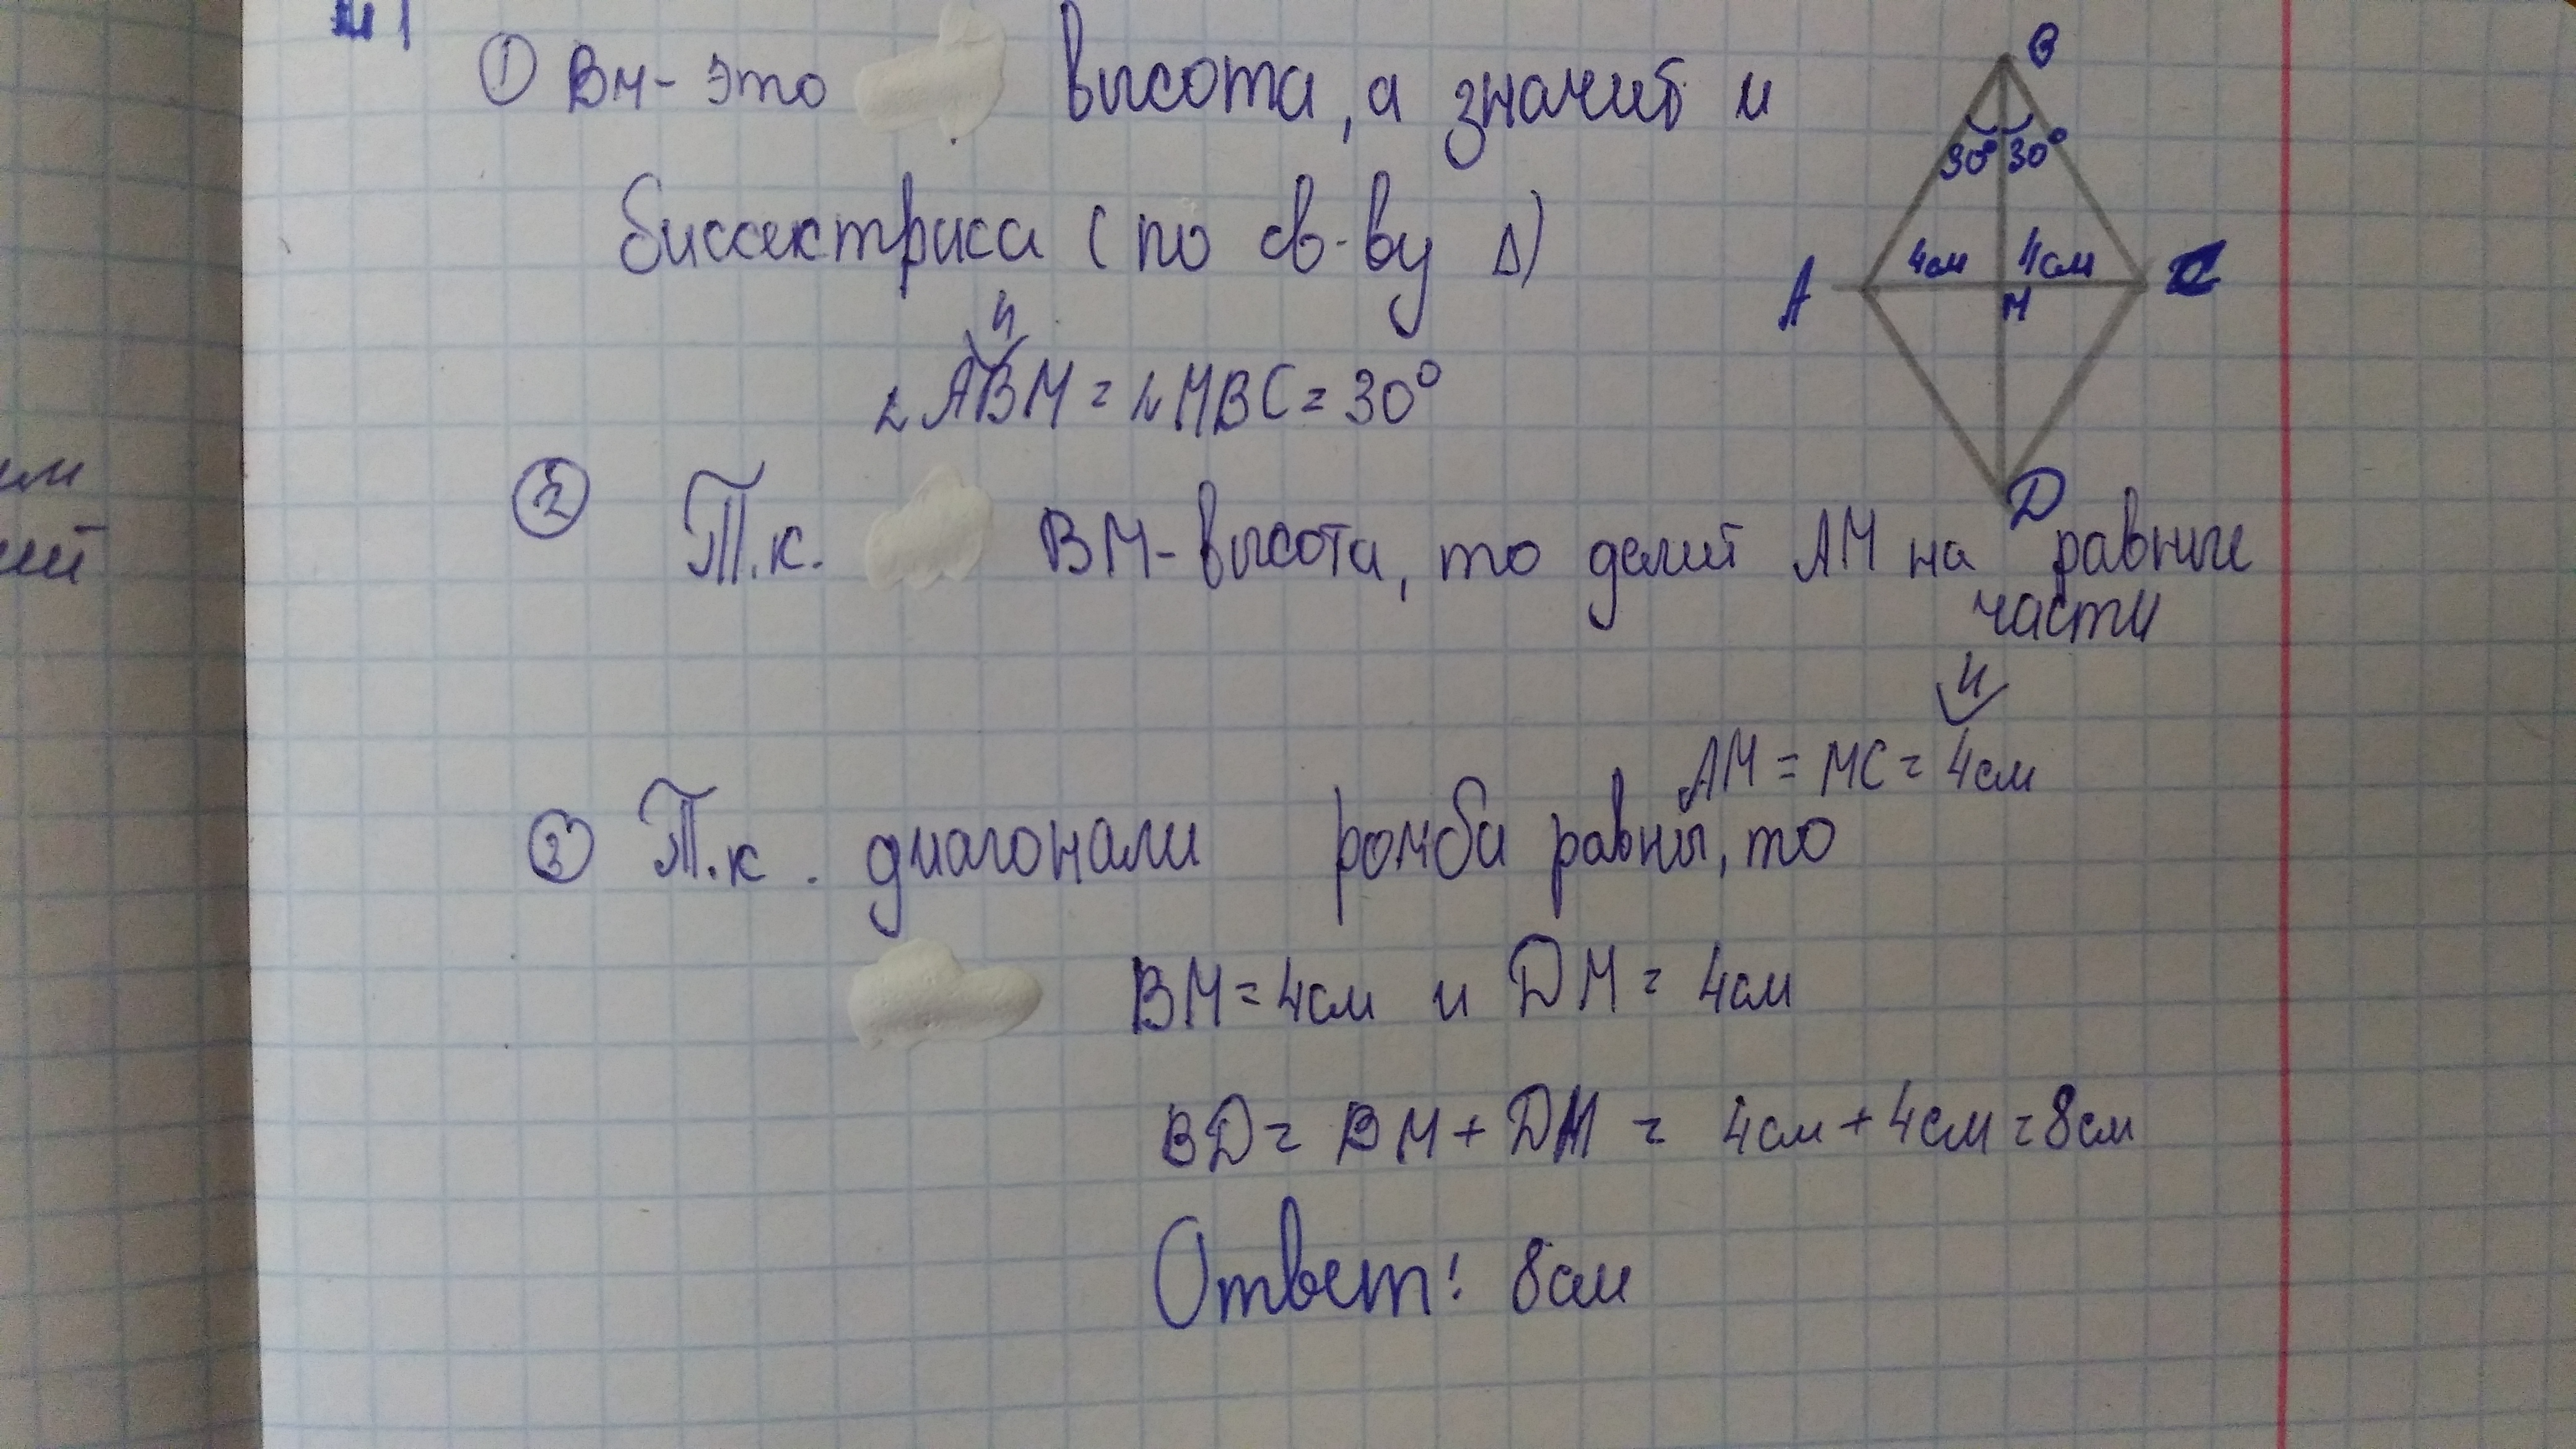 ① ВМ - это высота, а значит и
биссектриса (по св-ву Δ)
∠ АВМ = ∠ МВС = 30°
② Т.к. ВМ - высота, то делит АМ на равные
части
АМ = МС = 4см
③ Т.к. диагонали ромба равны, то
ВМ = 4см и DМ = 4см
ВD = ВМ + DМ = 4см + 4см = 8см
Ответ: 8см
В
30° 30°
4см 4см
А М С
D